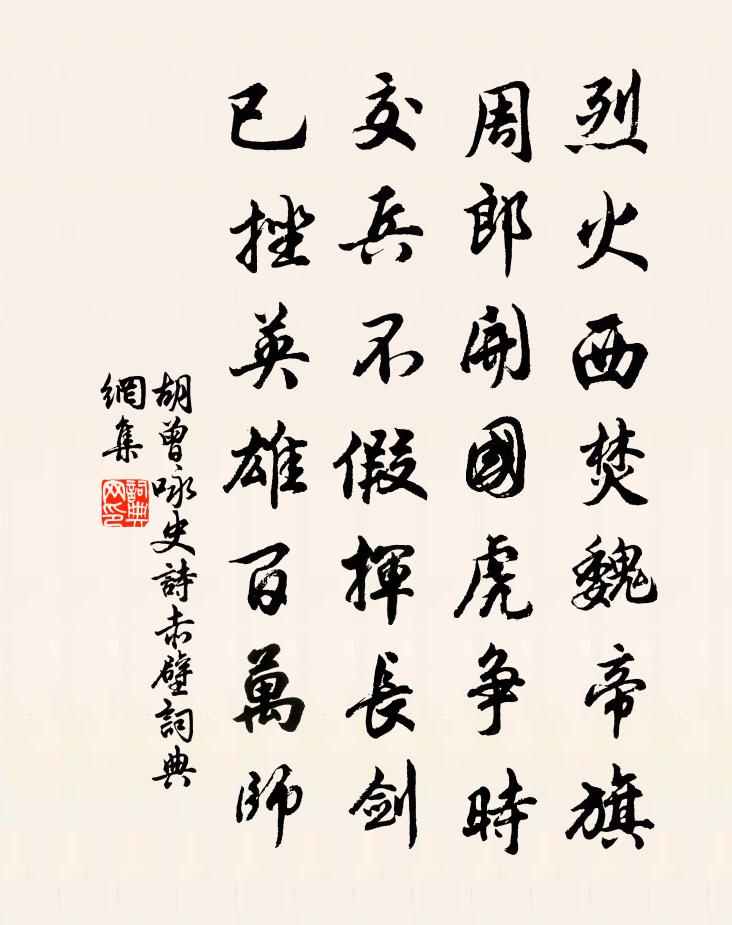 烈火西焚魏帝旗
周郎開國虎争時
交兵不假揮長劍
已挫英雄百萬師
胡曾咏史詩赤壁詞典
網集
詞典網印